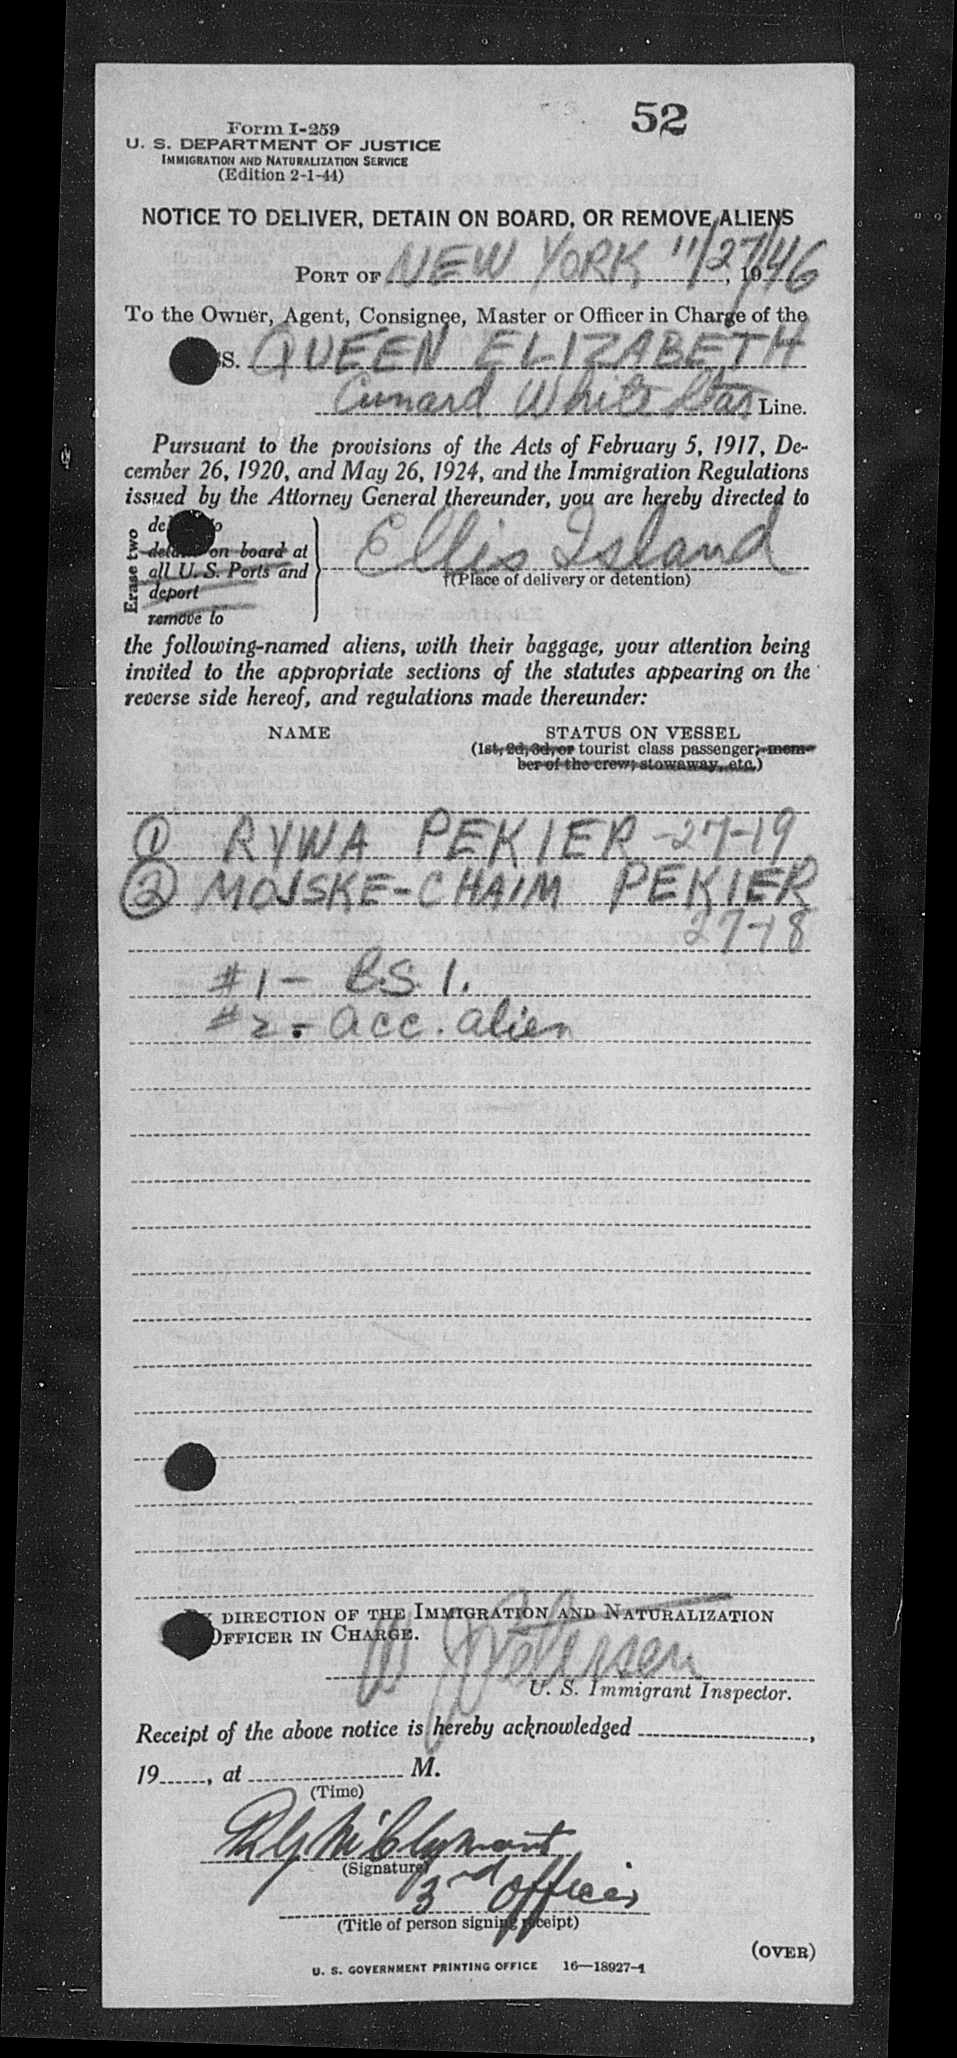 52
Form I-259
U. S. DEPARTMENT OF JUSTICE
IMMIGRATION AND NATURALIZATION SERVICE
(Edition 2-1-44)
NOTICE TO DELIVER, DETAIN ON BOARD, OR REMOVE ALIENS
PORT OF NEW YORK 11/27/46, 19
To the Owner, Agent, Consignee, Master or Officer in Charge of the
S. QUEEN ELIZABETH
Cunard White Star Line.
Pursuant to the provisions of the Acts of February 5, 1917, De-
cember 26, 1920, and May 26, 1924, and the Immigration Regulations
issued by the Attorney General thereunder, you are hereby directed to
Erase two
to
on board at
all U. S. Ports and
deport
remove to
Ellis Island
(Place of delivery or detention)
the following-named aliens, with their baggage, your attention being
invited to the appropriate sections of the statutes appearing on the
reverse side hereof, and regulations made thereunder:
NAME STATUS ON VESSEL
(1st, 2d, 3d, or tourist class passenger; mem-
ber of the crew; stowaway, etc.)
1 RYWA PEKIER -27-19
2 MOJSKE-CHAIM PEKIER
27-18
#1 - B.S.I.
#2 - acc. alien
BY DIRECTION OF THE IMMIGRATION AND NATURALIZATION
OFFICER IN CHARGE.
W Petersen
U. S. Immigrant Inspector.
Receipt of the above notice is hereby acknowledged ,
19 , at M.
(Time)
(Signature)
3rd Officer
(Title of person signing receipt)
(OVER)
U. S. GOVERNMENT PRINTING OFFICE 16—18927-1